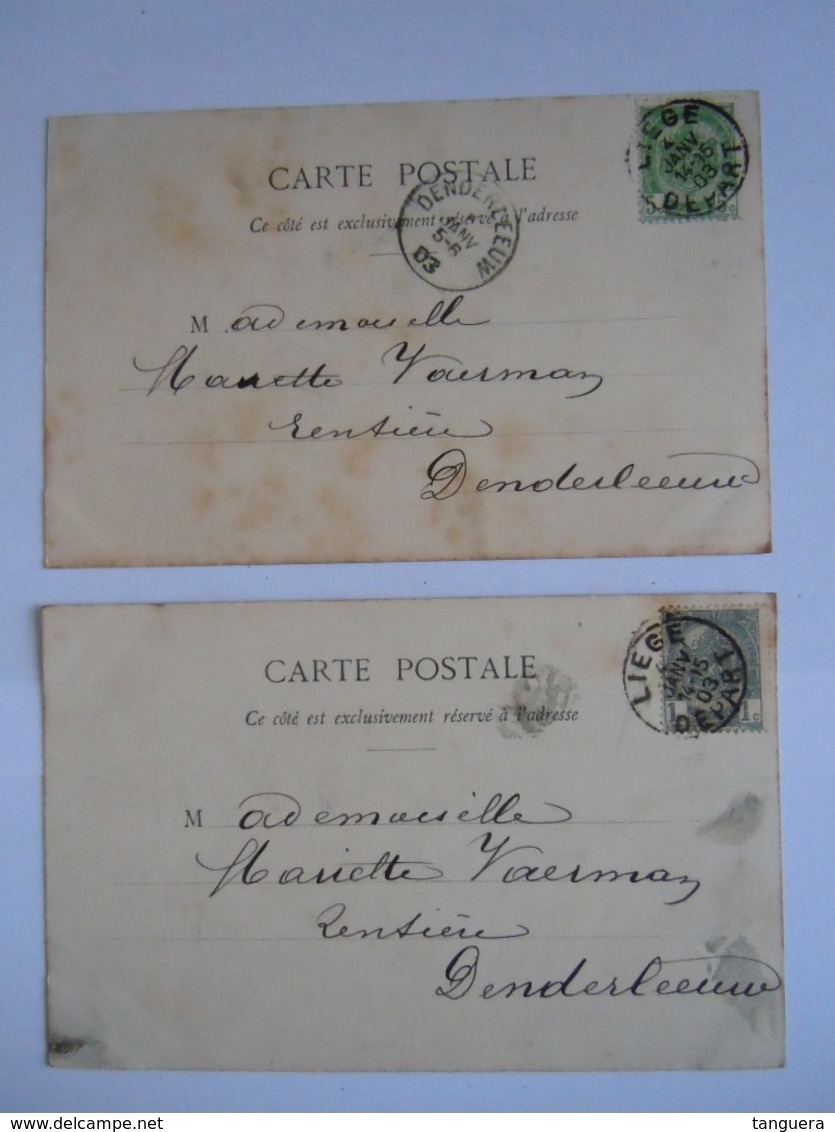 CARTE POSTALE
Ce côté est exclusivement réservé à l'adresse
LIEGE
JANV
14-15
03
DEPART
5 5c
DENDERLEEUW
JANV
5-6
03
M ademoiselle
Mariette Vaerman
Rentière
Denderleeuw
CARTE POSTALE
Ce côté est exclusivement réservé à l'adresse
LIEGE
JANV
14-15
03
DEPART
1 1c
M ademoiselle
Mariette Vaerman
Rentière
Denderleeuw
delcampe.net
tanguera